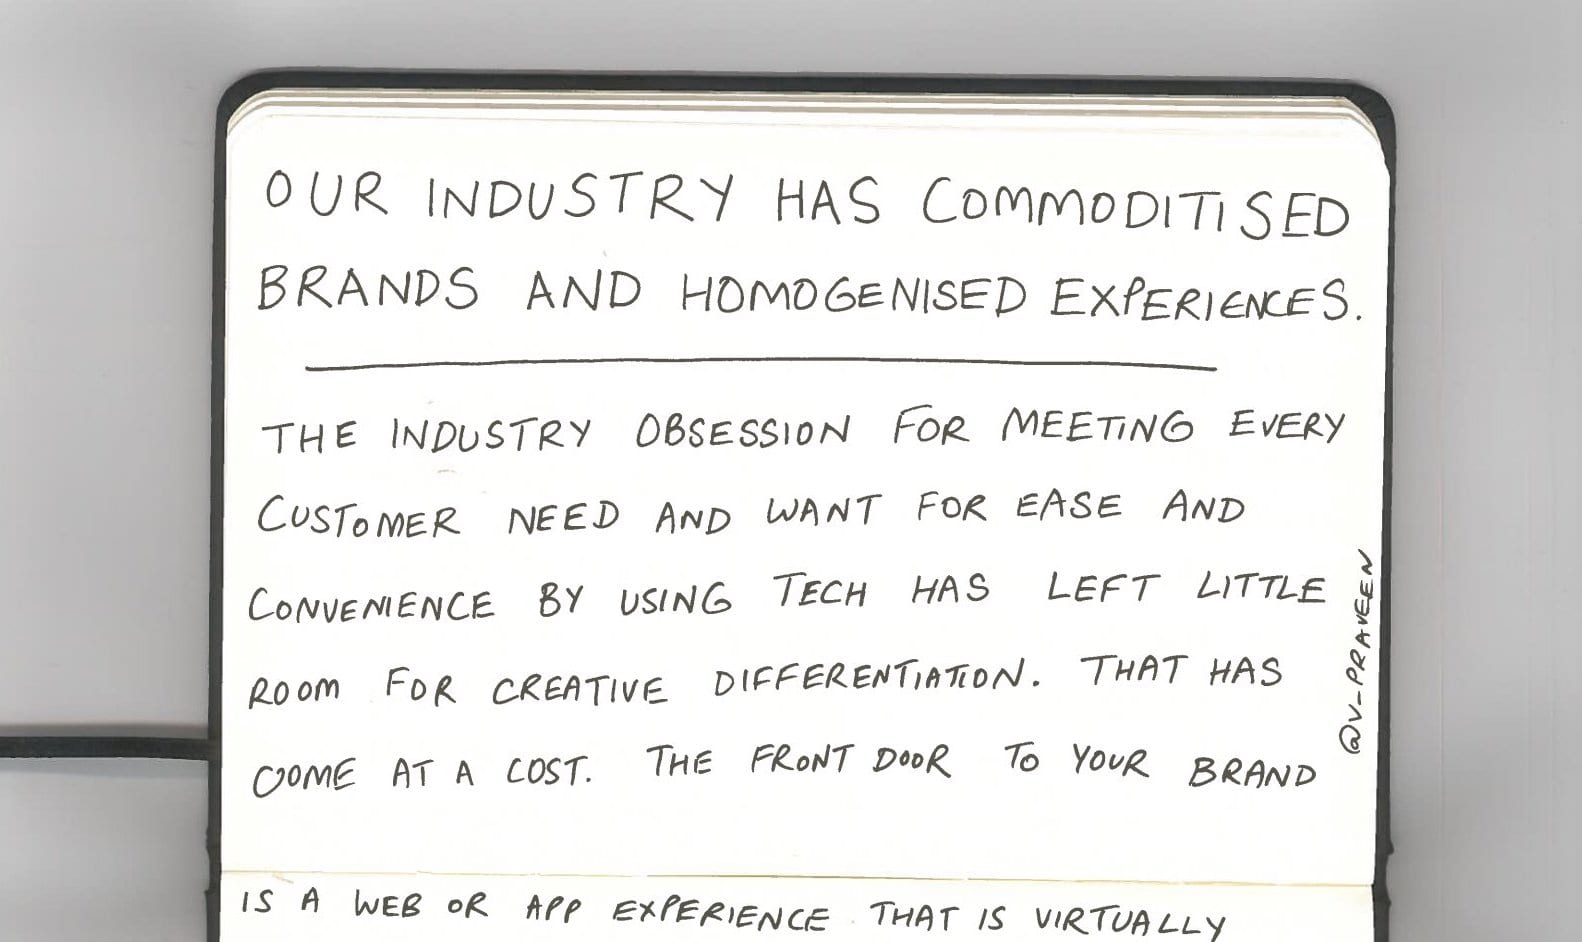 OUR INDUSTRY HAS COMMODITISED
BRANDS AND HOMOGENISED EXPERIENCES.
THE INDUSTRY OBSESSION FOR MEETING EVERY
CUSTOMER NEED AND WANT FOR EASE AND
CONVENIENCE BY USING TECH HAS LEFT LITTLE
ROOM FOR CREATIVE DIFFERENTIATION. THAT HAS
COME AT A COST. THE FRONT DOOR TO YOUR BRAND
IS A WEB OR APP EXPERIENCE THAT IS VIRTUALLY
@V_PRAVEEN